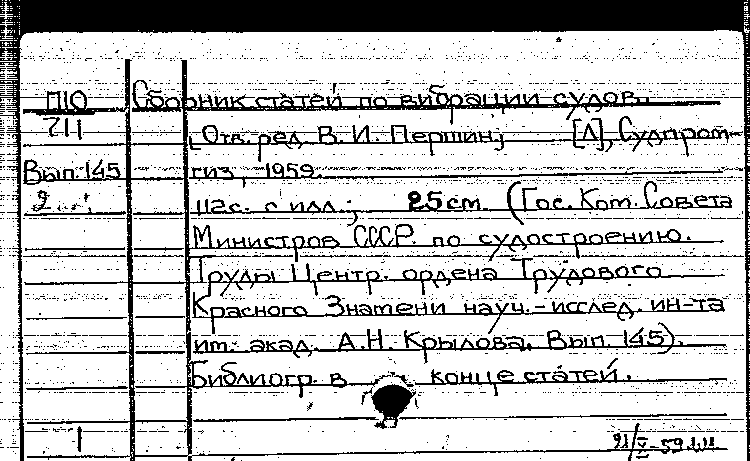 П10 Сборник статей по вибрации судов.
711 [Отв. ред. В. И. Першин] [Л], Судпром-
Вып. 145 гиз, 1959.
2 112с. с илл.; 25см. (Гос. Ком. Совета
Министров СССР. по судостроению.
Труды Центр. ордена Трудового
Красного Знамени науч.-исслед. ин-та
им. акад. А.Н. Крылова. Вып. 145).
Библиогр. в конце статей.
1